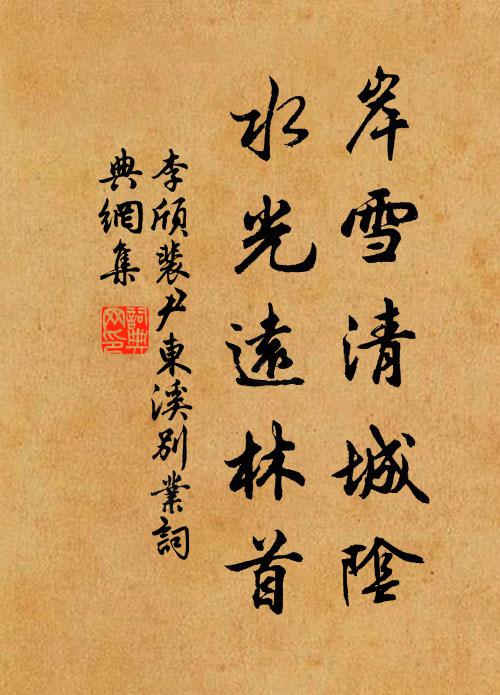 岸雪清城陰
水光遠林首
李頎裴尹東溪別業詞
典網集
詞典
网印